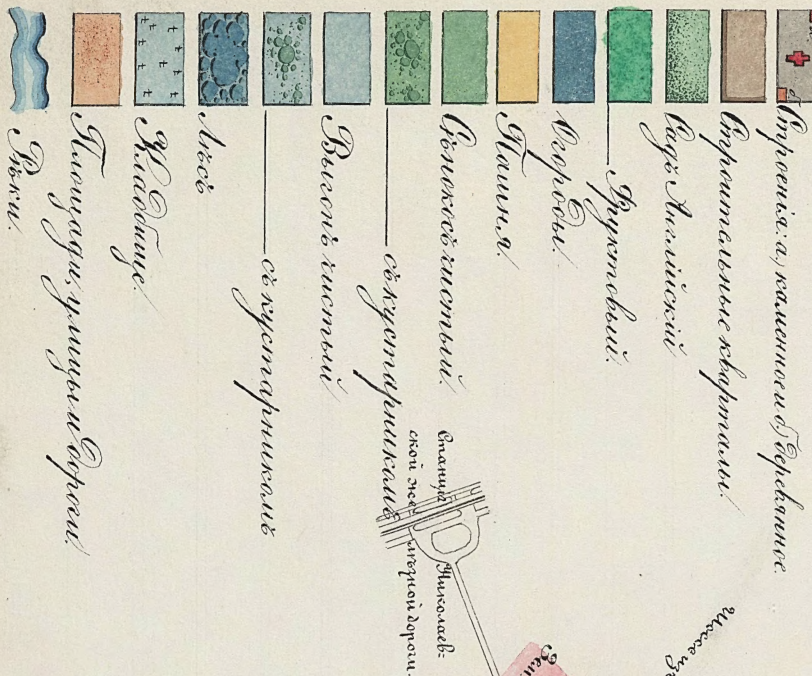 Строенія: а, каменное и б, деревянное.
Строительные кварталы.
Садъ Англійскій
——— Фруктовый.
Огороды.
Пашня.
Сѣнокосъ чистый.
——— съ кустарникомъ
Выгонъ чистый
——— съ кустарникомъ
Лѣсъ
Кладбище.
Площади, улицы и дороги.
Рѣки.
Станція Николаев-
ской желѣзной дороги.
Шоссе из